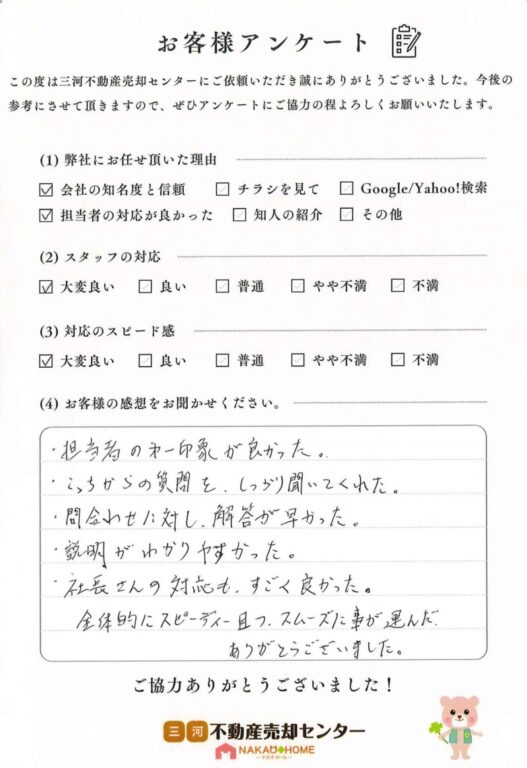 お客様アンケート
この度は三河不動産売却センターにご依頼いただき誠にありがとうございました。今後の
参考にさせて頂きますので、ぜひアンケートにご協力の程よろしくお願いいたします。
(1) 弊社にお任せ頂いた理由
会社の知名度と信頼 チラシを見て Google/Yahoo!検索
担当者の対応が良かった 知人の紹介 その他
(2) スタッフの対応
大変良い 良い 普通 やや不満 不満
(3) 対応のスピード感
大変良い 良い 普通 やや不満 不満
(4) お客様の感想をお聞かせください。
・担当者の第一印象が良かった。
・こっちからの質問を、しっかり聞いてくれた。
・問合わせに対し、解答が早かった。
・説明がわかりやすかった。
・社長さんの対応も、すごく良かった。
全体的にスピーディー且つ、スムーズに事が運んだ。
ありがとうございました。
ご協力ありがとうございました！
三河不動産売却センター
NAKAO HOME
ナカオホーム